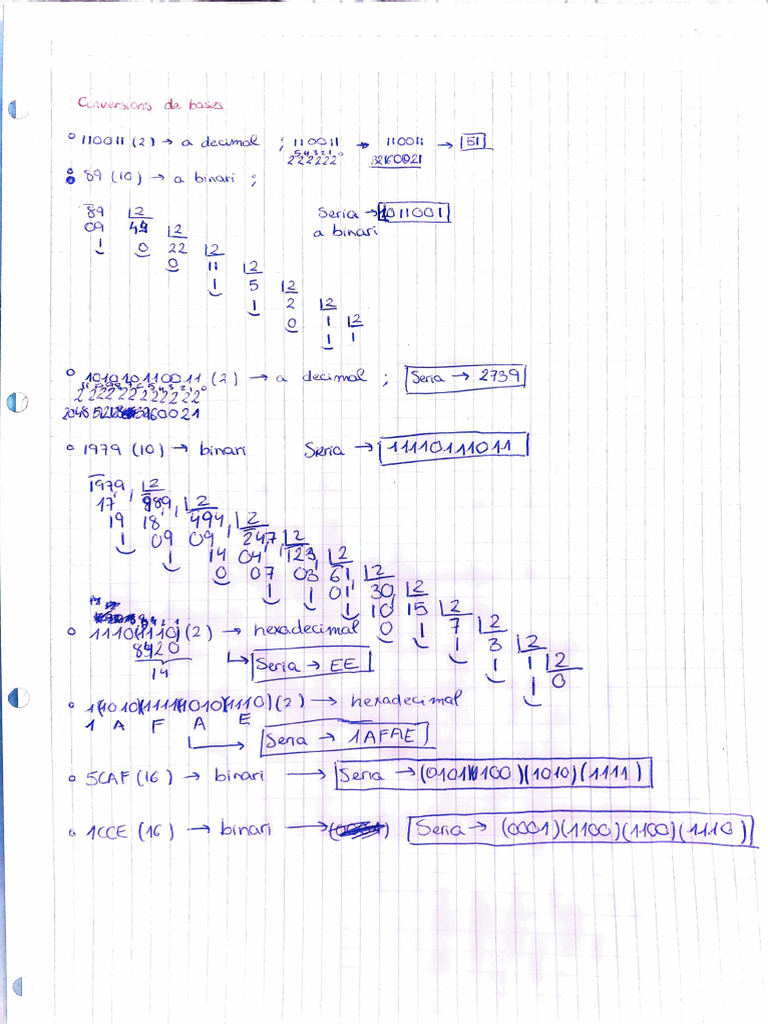 Conversions de bases
110011 (2) → a decimal ; 110011 → 110011 → 51
5 4 3 2 1 0
2 2 2 2 2 2 32 16 0 0 2 1
89 (10) → a binari ;
89 |2 Seria → 1011001
09 44 |2 a binari
1 0 22 |2
0 11 |2
1 5 |2
1 2 |2
0 1 |2
1 1
101010110011 (2) → a decimal ; Seria → 2739
2 2 2 2 2 2 2 2 2 2 2 2
1979 (10) → binari Seria → 11110111011
1979 |2
17 989 |2
19 18 494 |2
1 09 09 247 |2
1 14 04 123 |2
0 07 03 61 |2
1 1 01 30 |2
1 10 15 |2
0 1 7 |2
1 3 |2
1 1 |2
1 0
1110)(1110) (2) → hexadecimal
8420 ↳ Seria → EE
14
1(1010)(1111)(1010)(1110) (2) → hexadecimal
1 A F A E
→ Seria → 1AFAE
5CAF (16) → binari → Seria → (0101)(1100)(1010)(1111)
1CCE (16) → binari → Seria → (0001)(1100)(1100)(1110)